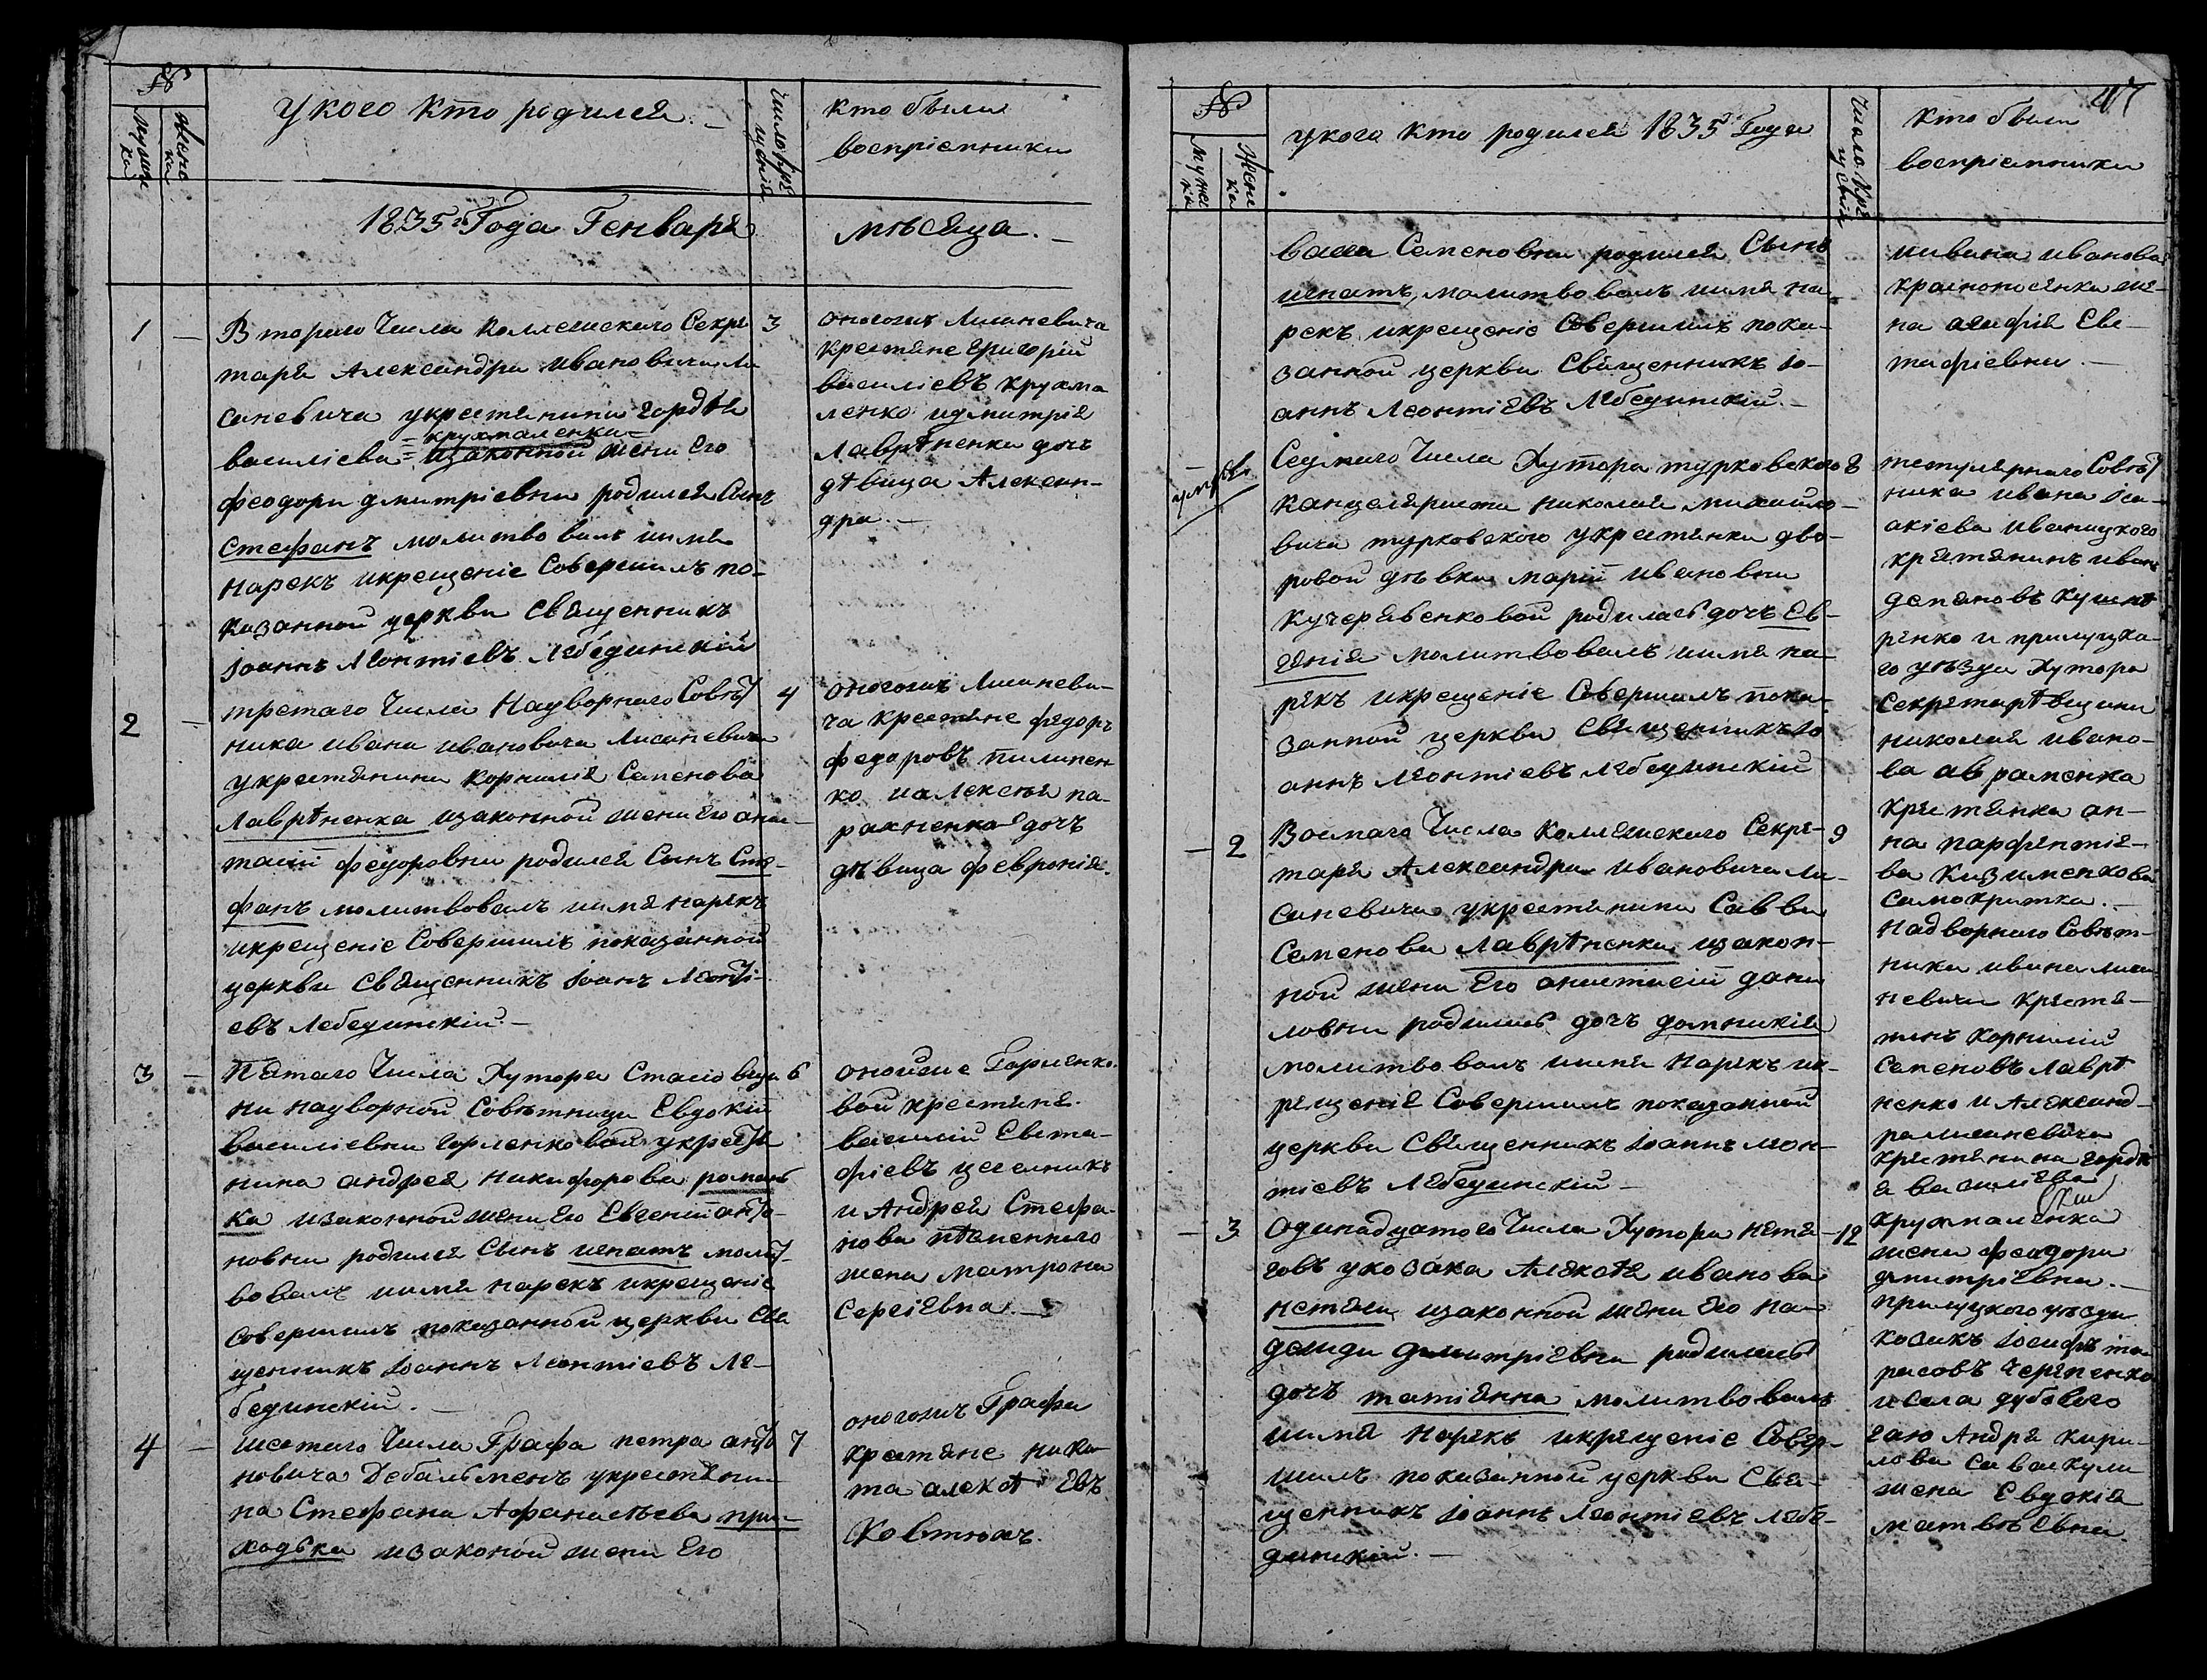 №
мужеска
женска
у кого кто родился.
число крещенія
кто были
воспріемники
1835го Года Генваря
мѣсяца.
1 —
Втораго Числа Коллежскаго Секре
таря Александра Ивановича Ли
саневича у крестянина Гордѣя
василіева = крухмаленка =
изаконной жени Его
феодори дмитріевни родился Сынъ
Стефанъ молитвовалъ имя
нарекъ икрещеніе Совершилъ по-
казанной церкви Священникъ
Іоаннъ Леонтіевъ Лебединскій
3
оногожъ Лисаневича
крестяне григорій
василіевъ крухма
ленко и дмитрія
Лаврѣненка дочъ
дѣвица Алексан-
дра. —
2 —
третаго Числа Надворного Совѣт
ника ивана ивановича Лисаневича
у крестянина корнилія Семенова
Лаврѣненка изаконной жени Его анас-
тасіи федоровни родился Сынъ Сте-
фанъ молитвовалъ имя нарекъ
икрещеніе Совершилъ показанной
церкви Священникъ Іоанъ Леонті-
евъ Лебединскій. —
4
оногожъ Лисаневи-
ча крестяне федоръ
федоровъ пилипен
ко и алексѣя па-
рахненка дочъ
дѣвица февронія.
3 —
Пятаго Числа Хутора Стасіовщи
ни надворной Совѣтници Евдокіи
василіевни горленковой у крестя
нина андрея никифорова роман
ка изаконной жени Его Евгеніи анто-
новни родился Сынъ игнатъ молит-
вовалъ имя нарекъ икрещеніе
совершилъ показанной церкви Свя
щенникъ Іоаннъ Леонтіевъ Ле-
бединскій. —
6
онойже Горленко-
вой крестяне
василій Евста-
фіевъ
и Андрея Стефа-
нова
жена матрона
Сергіевна. —
4 —
шестаго Числа Графа петра анто
новича Дебальменъ у крестяни-
на Стефана Афанасіева при-
ходька изаконой жени Его
7
оногожъ Графа
крестяне ники
та алексѣевъ
Ковтюхъ.
47
№
мужеска
женска
у кого кто родился 1835 Года
Число крещенія
кто были
воспріемники
Семеновни родился Сынъ
игнатъ, молитвовалъ имя на-
рекъ икрещеніе Совершилъ пока-
занной церкви Священникъ Іо-
аннъ Леонтіевъ Лебединскій. —
ивана иванова
же-
на агафія Евс-
тафіевни. —
Седмаго Числа Хутора турковского
канцеляриста николая михайло-
вича турковского у крестянки дво-
ровой дѣвки маріи ивановни
кучерявенковой родилась дочъ Ев-
генія молитвовалъ имя на-
рекъ икрещеніе Совершилъ пока-
занной церкви Священникъ Іо
аннъ Леонтіевъ Лебединскій
8
титулярного Совѣт
ника ивана Іса-
акіева иваницкого
крестянинъ иванъ
ренко и прилуцка-
го уѣзда Хутора
Секретарѣвщини
николая ивано-
ва авраменка
крестянка ан-
на парфентіе-
ва кизименкова
— 2
Восмаго Числа Коллежского Секре-
таря Александра Ивановича Ли-
саневича у крестянина Савви
Семенова Лаврѣненка изакон-
ной жени Его анастасіи дани
ловни родилась дочъ домникія
молитвовалъ имя нарекъ ик-
рещеніе Совершилъ показанной
церкви Священникъ Іоаннъ Леон-
тіевъ Лебединскій —
9
надворного Совѣт-
ника ивана лиса
невича крестя-
нинъ корнилій
Семеновъ Лаврѣ
ненко и Александ-
ра лисаневича
крестянина гордѣ
я василіева
крухмаленка
жена феодора
дмитріевна. —
— 3
Одинадцатого Числа Хутора нетя-
говъ у козака Алексѣя иванова
нетяги изаконной жени Его на-
дежди дмитріевни родилась
дочъ татіянна молитвовалъ
имя нарекъ икрещеніе Совер-
шилъ показанной церкви Свя-
щенникъ Іоаннъ Леонтіевъ Лебе-
динскій. —
12
прилуцкого уѣзда
козакъ Іосифъ та
расовъ Черненко
и села дубового
гаю Андрея кири-
лова
жена Евдокія
матвѣевна